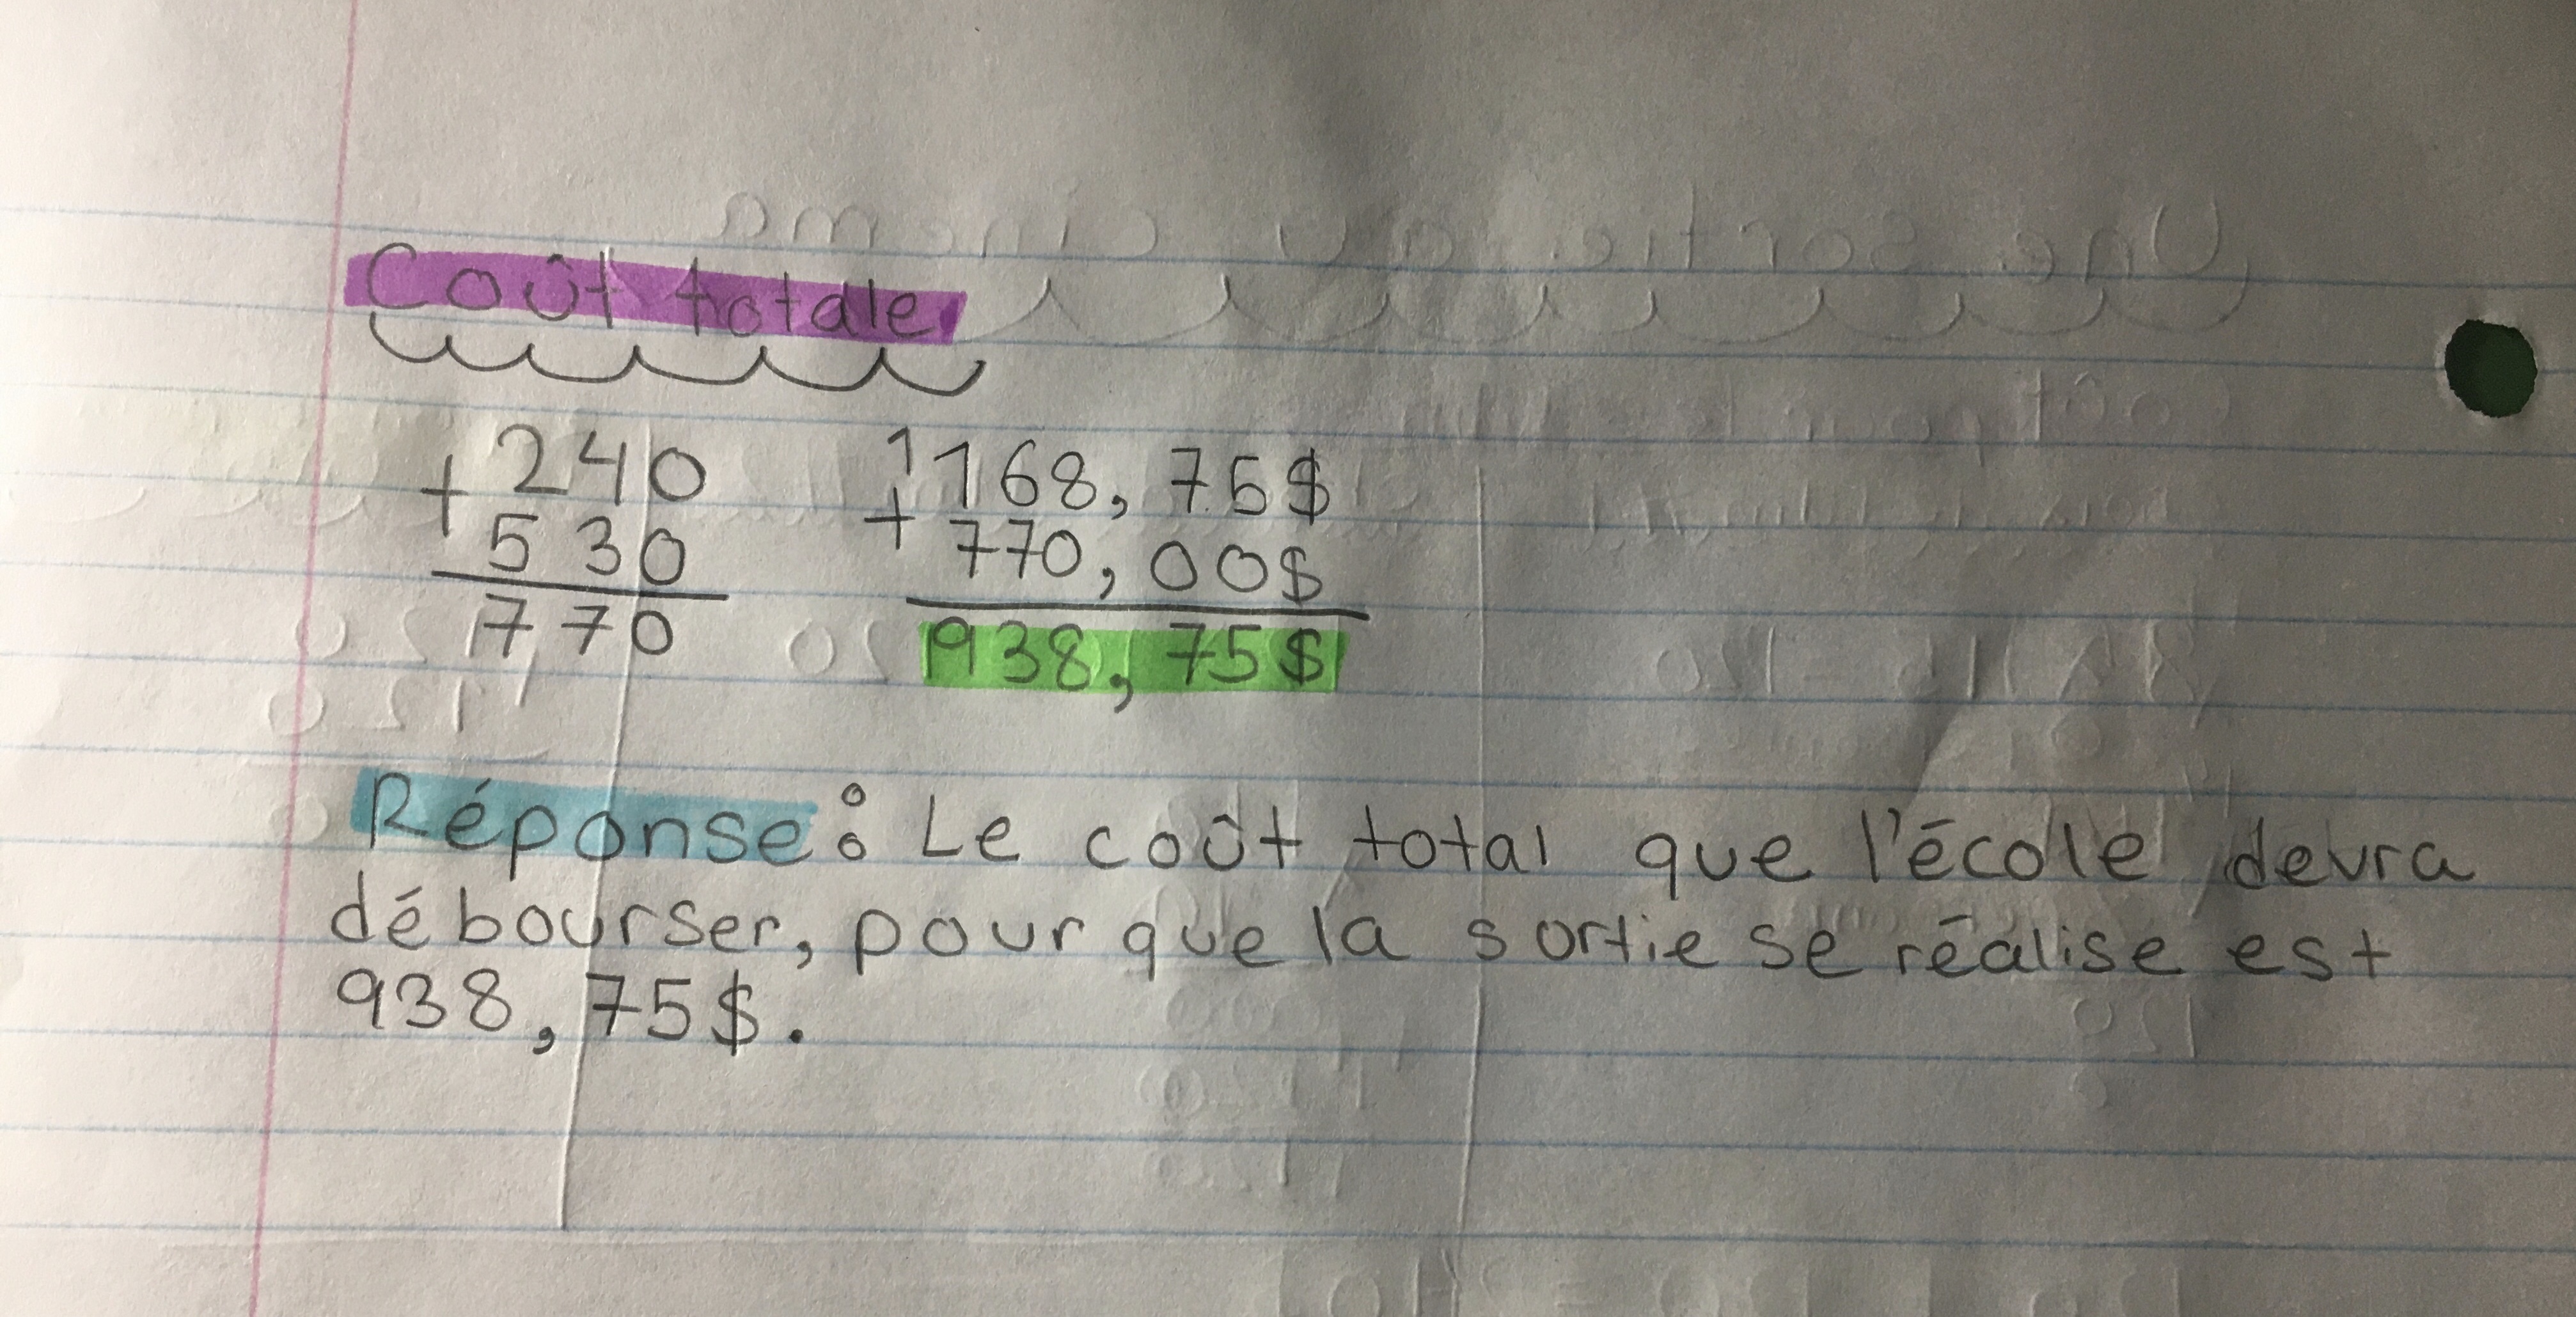 Coût totale
+ 240
530
770
1
168,75$
+ 770,00$
938,75$
Réponse : Le coût total que l'école devra
débourser, pour que la sortie se réalise est
938,75$.